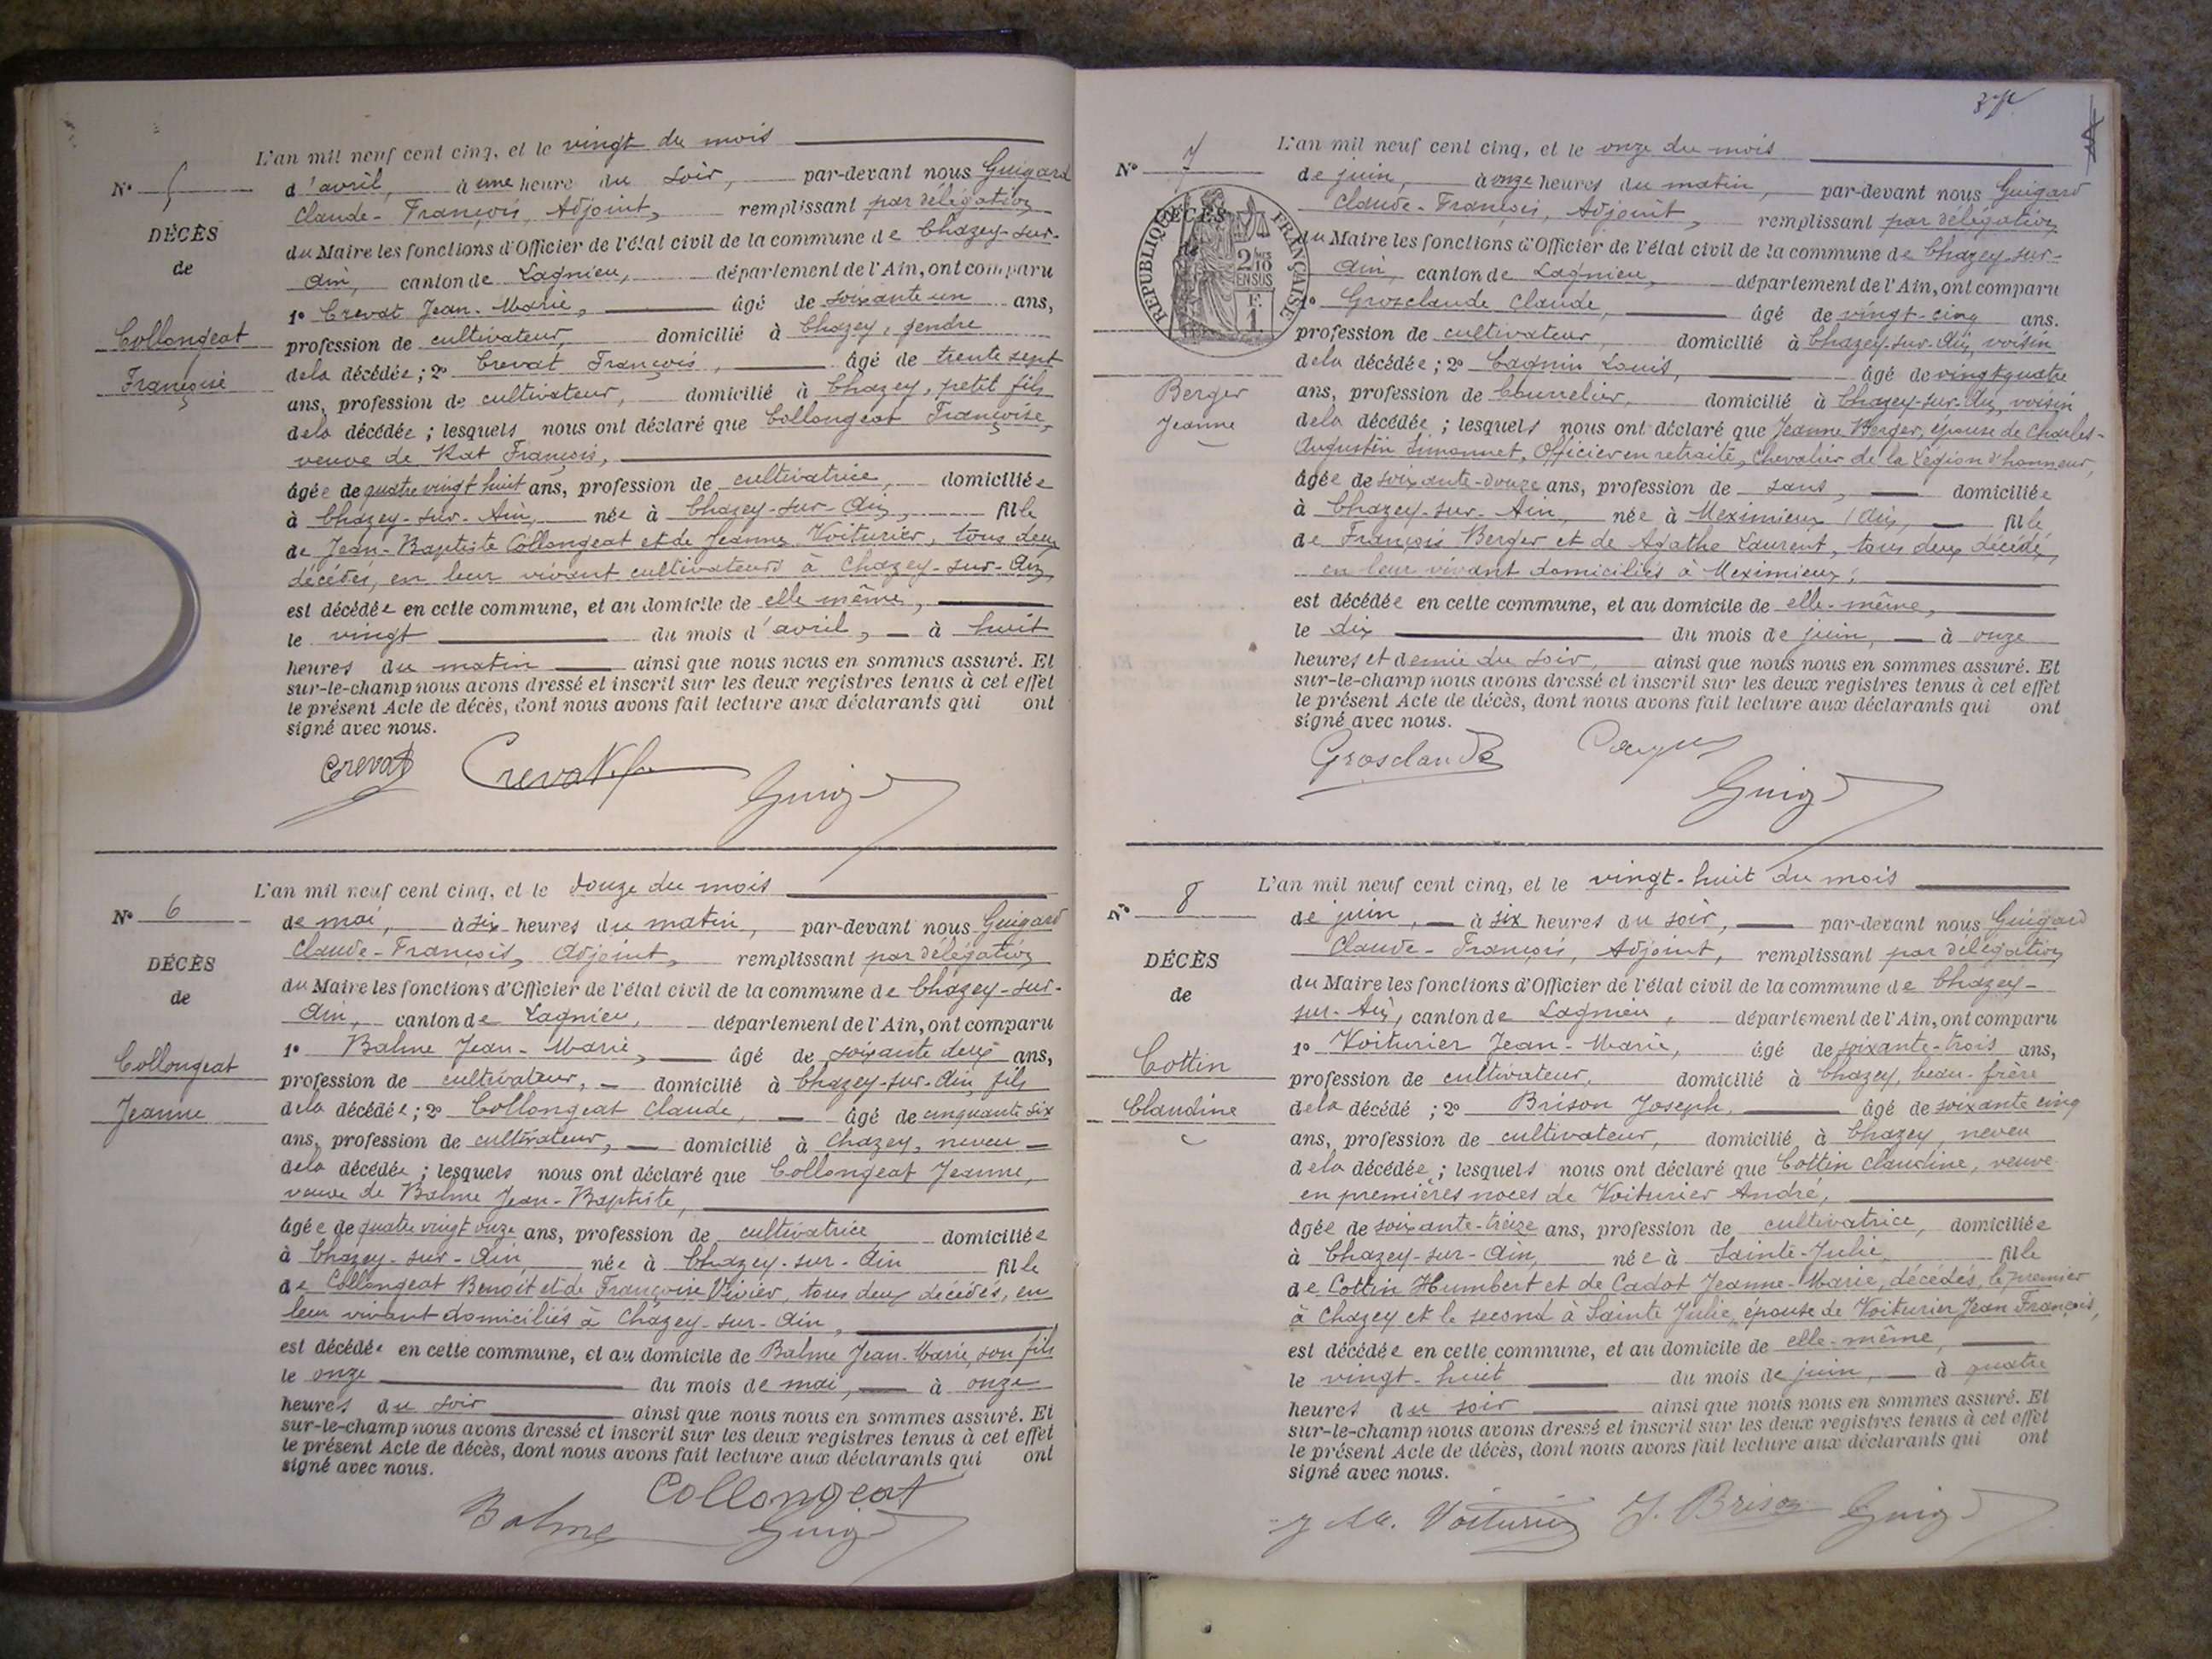 L'an mil neuf cent cinq, et le vingt du mois
N° 5
d'avril, à une heure du soir, par-devant nous Guigard
Claude-François, Adjoint, remplissant par délégation
DÉCÈS
du Maire les fonctions d'Officier de l'état civil de la commune de Chazey-sur-
de
Ain, canton de Lagnieu, département de l'Ain, ont comparu
1° Crevat Jean-Marie, âgé de soixante un ans,
Collongeat
profession de cultivateur, domicilié à Chazey, gendre
Françoise
de la décédée ; 2° Crevat François, âgé de trente sept
ans, profession de cultivateur, domicilié à Chazey, petit fils
de la décédée ; lesquels nous ont déclaré que Collongeat Françoise,
veuve de Rat François,
âgée de quatre vingt huit ans, profession de cultivatrice, domiciliée
à Chazey-sur-Ain, née à Chazey-sur-Ain, fille
de Jean-Baptiste Collongeat et de Jeanne Voiturier, tous deux
décédés, en leur vivant cultivateurs à Chazey-sur-Ain,
est décédée en cette commune, et au domicile de elle même,
le vingt du mois d'avril, à huit
heures du matin ainsi que nous nous en sommes assuré. Et
sur-le-champ nous avons dressé et inscrit sur les deux registres tenus à cet effet
le présent Acte de décès, dont nous avons fait lecture aux déclarants qui ont
signé avec nous.
Crevat Crevat fils
Guigard
L'an mil neuf cent cinq, et le douze du mois
N° 6
de mai, à six heures du matin, par-devant nous Guigard
Claude-François, Adjoint, remplissant par délégation
DÉCÈS
du Maire les fonctions d'Officier de l'état civil de la commune de Chazey-sur-
de
Ain, canton de Lagnieu, département de l'Ain, ont comparu
1° Balme Jean-Marie, âgé de soixante deux ans,
Collongeat
profession de cultivateur, domicilié à Chazey-sur-Ain, fils
Jeanne
de la décédée ; 2° Collongeat Claude, âgé de cinquante six
ans, profession de cultivateur, domicilié à Chazey, neveu
de la décédée ; lesquels nous ont déclaré que Collongeat Jeanne,
veuve de Balme Jean-Baptiste,
âgée de quatre vingt onze ans, profession de cultivatrice domiciliée
à Chazey-sur-Ain, née à Chazey-sur-Ain fille
de Collongeat Benoit et de Françoise Vivier, tous deux décédés, en
leur vivant domiciliés à Chazey-sur-Ain,
est décédée en cette commune, et au domicile de Balme Jean-Marie, son fils
le onze du mois de mai, à onze
heures du soir ainsi que nous nous en sommes assuré. Et
sur-le-champ nous avons dressé et inscrit sur les deux registres tenus à cet effet
le présent Acte de décès, dont nous avons fait lecture aux déclarants qui ont
signé avec nous.
Collongeat
Balme Guigard
L'an mil neuf cent cinq, et le onze du mois
N° 7
de juin, à onze heures du matin, par-devant nous Guigard
DÉCÈS
Claude-François, Adjoint, remplissant par délégation
de
du Maire les fonctions d'Officier de l'état civil de la commune de Chazey-sur-
RÉPUBLIQUE FRANÇAISE
2 10MES EN SUS
1 F.
Ain, canton de Lagnieu, département de l'Ain, ont comparu
1° Grosclaude Claude, âgé de vingt-cinq ans.
profession de cultivateur, domicilié à Chazey-sur-Ain, voisin
de la décédée ; 2° Cagnin Louis, âgé de vingt quatre
Berger
ans, profession de Tonnelier, domicilié à Chazey-sur-Ain, voisin
Jeanne
de la décédée ; lesquels nous ont déclaré que Jeanne Berger, épouse de Charles-
Augustin Simonnet, Officier en retraite, Chevalier de la Légion d'honneur,
âgée de soixante-douze ans, profession de sans, domiciliée
à Chazey-sur-Ain, née à Meximieux (Ain), fille
de François Berger et de Agathe Laurent, tous deux décédé,
en leur vivant domiciliés à Meximieux,
est décédée en cette commune, et au domicile de elle-même,
le dix du mois de juin, à onze
heures et demie du soir, ainsi que nous nous en sommes assuré. Et
sur-le-champ nous avons dressé et inscrit sur les deux registres tenus à cet effet
le présent Acte de décès, dont nous avons fait lecture aux déclarants qui ont
signé avec nous.
Grosclaude
Guigard
L'an mil neuf cent cinq, et le vingt-huit du mois
N° 8
de juin, à six heures du soir, par-devant nous Guigard
Claude-François, Adjoint, remplissant par délégation
DÉCÈS
du Maire les fonctions d'Officier de l'état civil de la commune de Chazey-
de
sur-Ain, canton de Lagnieu, département de l'Ain, ont comparu
1° Voiturier Jean-Marie, âgé de soixante-trois ans,
Cottin
profession de cultivateur, domicilié à Chazey, beau-frère
Claudine
de la décédé ; 2° Brison Joseph, âgé de soixante cinq
ans, profession de cultivateur, domicilié à Chazey, neveu
de la décédée ; lesquels nous ont déclaré que Cottin Claudine, veuve
en premières noces de Voiturier André,
âgée de soixante-treize ans, profession de cultivatrice, domiciliée
à Chazey-sur-Ain, née à Sainte-Julie, fille
de Cottin Humbert et de Cadot Jeanne-Marie, décédés, le premier
à Chazey et le second à Sainte Julie, épouse de Voiturier Jean François,
est décédée en cette commune, et au domicile de elle-même,
le vingt-huit du mois de juin, à quatre
heures du soir ainsi que nous nous en sommes assuré. Et
sur-le-champ nous avons dressé et inscrit sur les deux registres tenus à cet effet
le présent Acte de décès, dont nous avons fait lecture aux déclarants qui ont
signé avec nous.
J M. Voiturier J. Brison Guigard